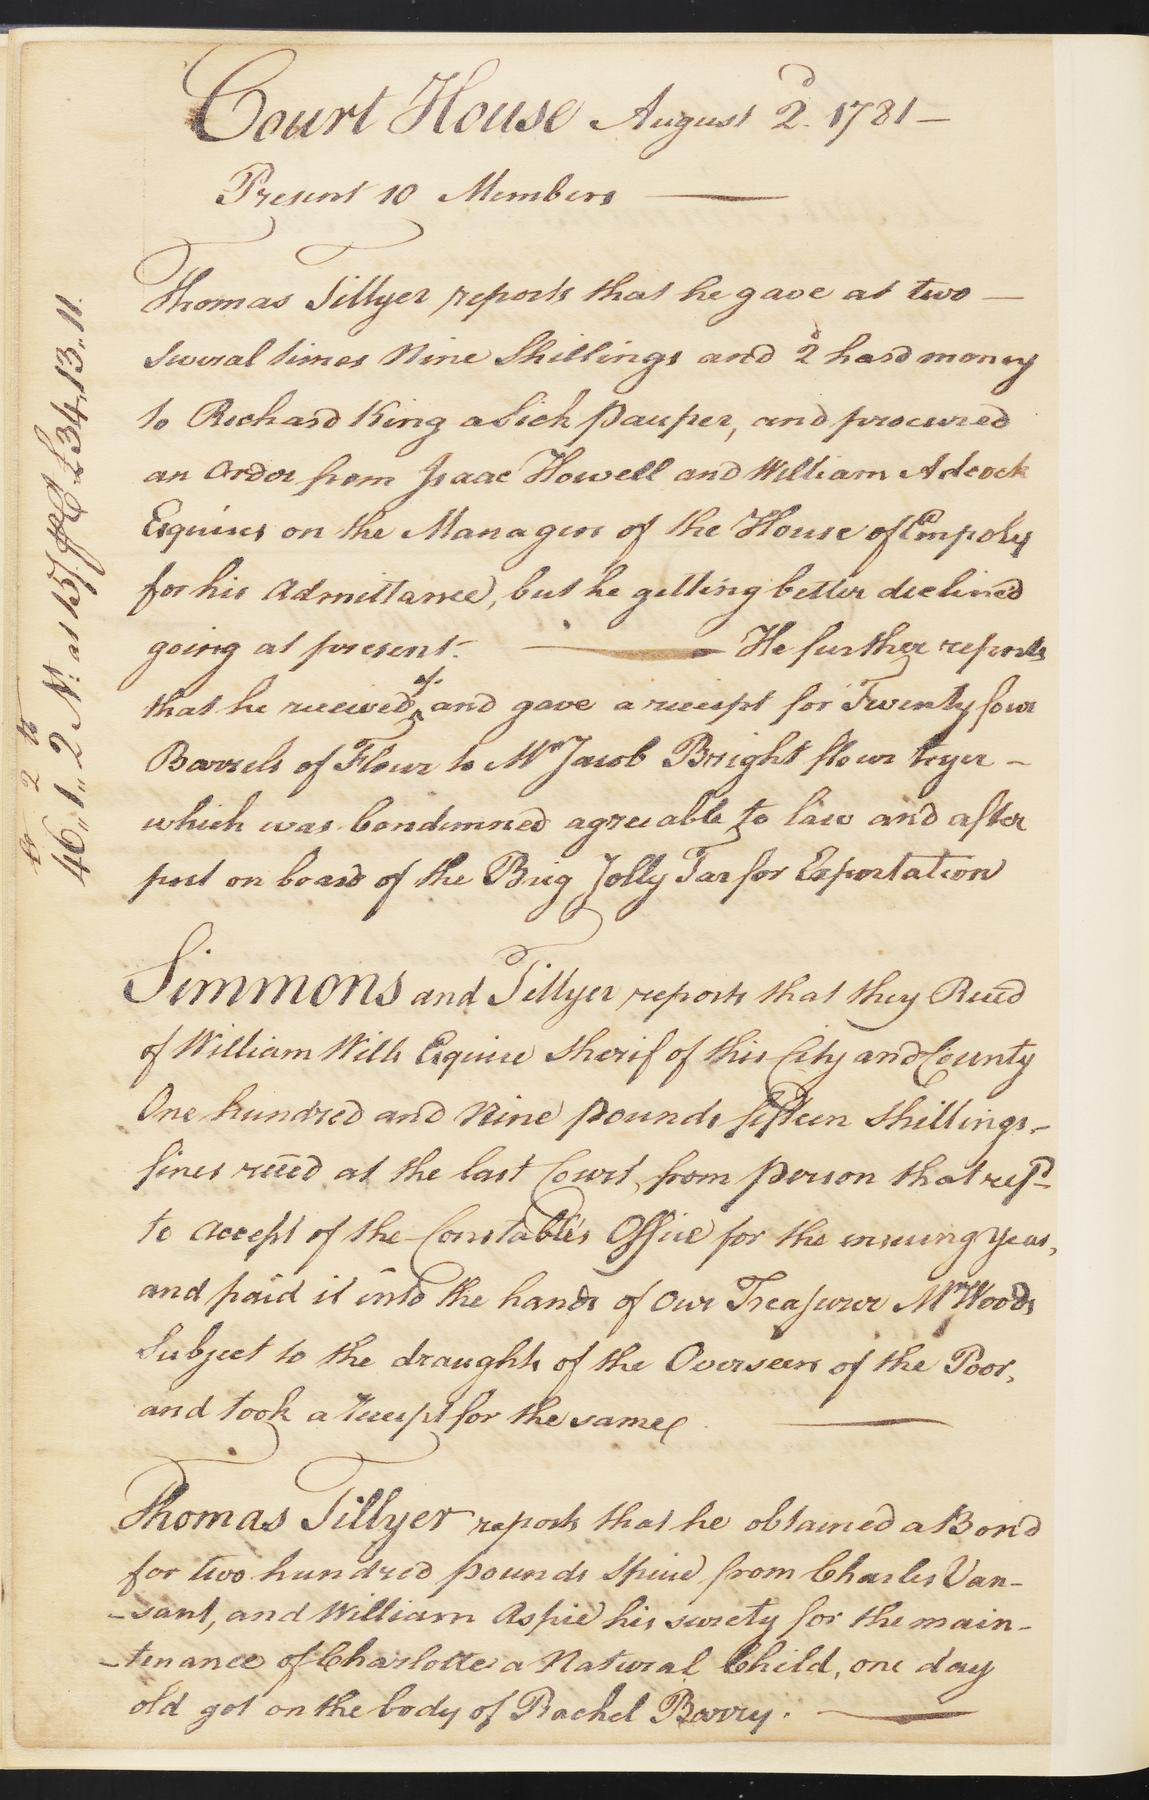 Court House August 2d. 1781 —
Present 10 Members —
Thomas Tillyer reports that he gave at two —
several times Nine Shillings and 2d hard money
to Richard King a Sick Pauper, and procured
an Order from Isaac Howell and William Adcock
Esquires on the Managers of the House of Employ
for his Admittance, but he getting better declined
going at present. — He further reports
that he received of, and gave a receipt for Twenty four
Barrels of Flour to Mr Jacob Bright flour tryer —
which was Condemned agreeable to law and after
put on board of the Brig Jolly Tar for Exportation
Simmons and Tillyer reports that they Reced
of William Wills Esquire Sherif of this City and County
One hundred and Nine pounds fifteen Shillings —
fines reced at the last Court, from person that refd
to accept of the Constable's Office for the ensuing Year,
and paid it into the hands of Our Treasurer Mr Woods
Subject to the draughts of the Overseers of the Poor,
and took a Receipt for the same
Thomas Tillyer reports that he obtained a Bond
for two hundred pounds Specie from Charles Van-
-sant, and William Aspie his surety for the main-
-tenance of Charlotte a Natural Child, one day
old got on the body of Rachel Barry. —
46,,1,,2 Nt. at 15/ £34,,13,,11.